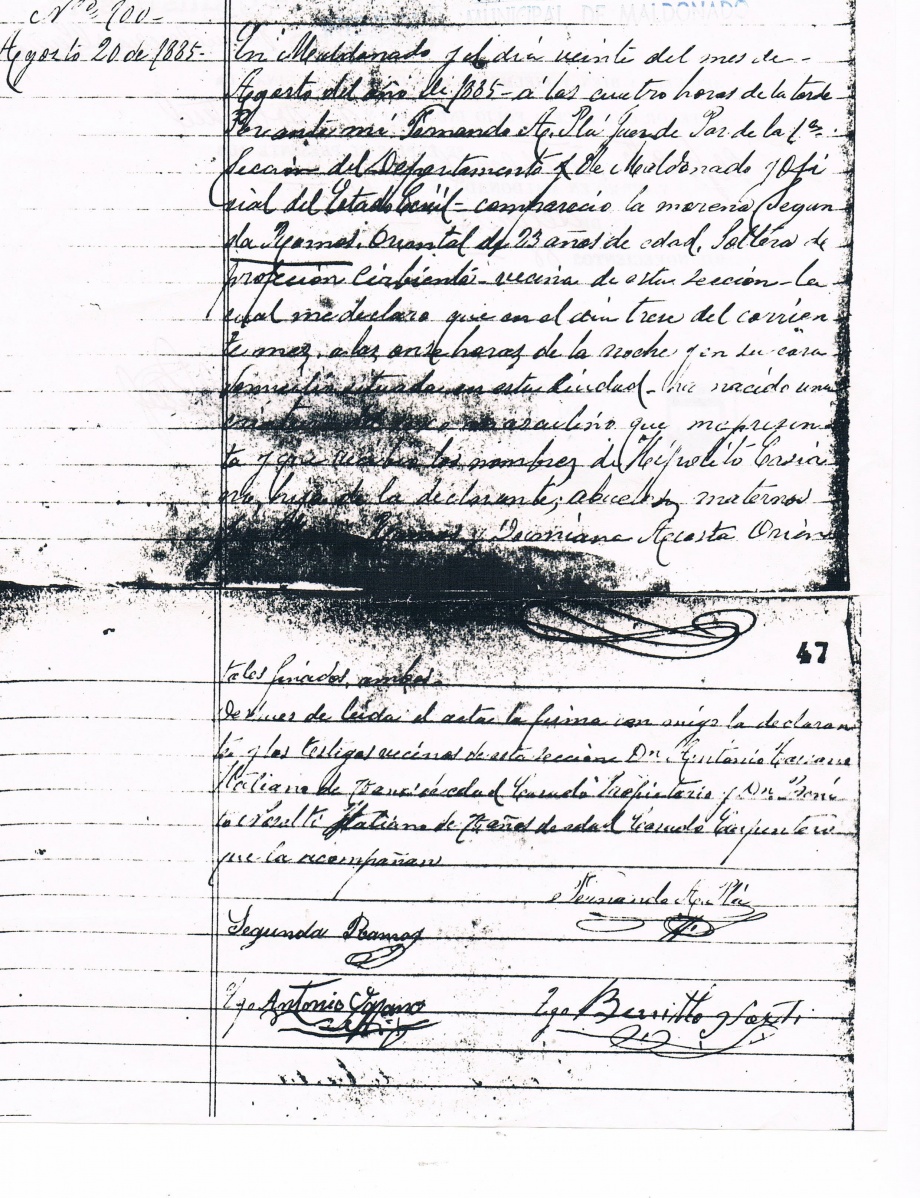 Nº 100-
Agosto 20 de 1885-
En Maldonado y el dia veinte del mes de-
Agosto del año de 1885- a las cuatro horas de la tarde
Por ante mi Fernando A. Plá Juez de Paz de la 1ª
Sección del Departamento de Maldonado y Ofi
cial del Estado Civil- compareció la morena Segun
da Ramos, Oriental de 23 años de edad, Soltera de
profecion Cirbienta- vecina de esta sección- la
cual me declaro que en el dia trese del corrien
te mez, a laz onse horaz de la noche y en su casa
domicilio situada en esta Ciudad- ha nacido una
masculino que me presen
ta y que recibio los nombrez de Hipolito Casia
no, hijo de la declarante, abuelos maternos
Ramos y Damiana Acosta Orien
47
tales finados, ambos-
Despues de leida el acta la firma con migo la declaran
te y los testigos vecinos de esta sección Dn. Antonio
Italiano de años de edad Casado Propietario y Dn. Beni
to Italiano de años de edad Casado Carpintero
que la acompañan
Fernando A. Plá
Segunda Ramos
Tgo Antonio
Tgo Benitto